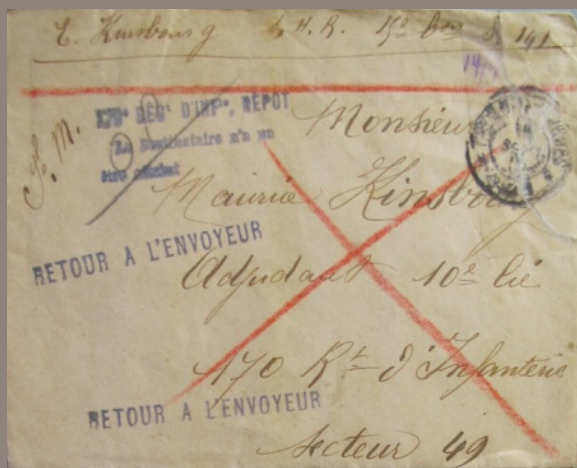 E. Kinsbourg
F. M.
170e REGt D'INFie, DEPOT
Le Destinataire n'a pu
être atteint
Monsieur
Maurice Kinsbourg
RETOUR A L'ENVOYEUR
Adjudant 10e Cie
170 Rt d'Infanterie
RETOUR A L'ENVOYEUR
Secteur 49